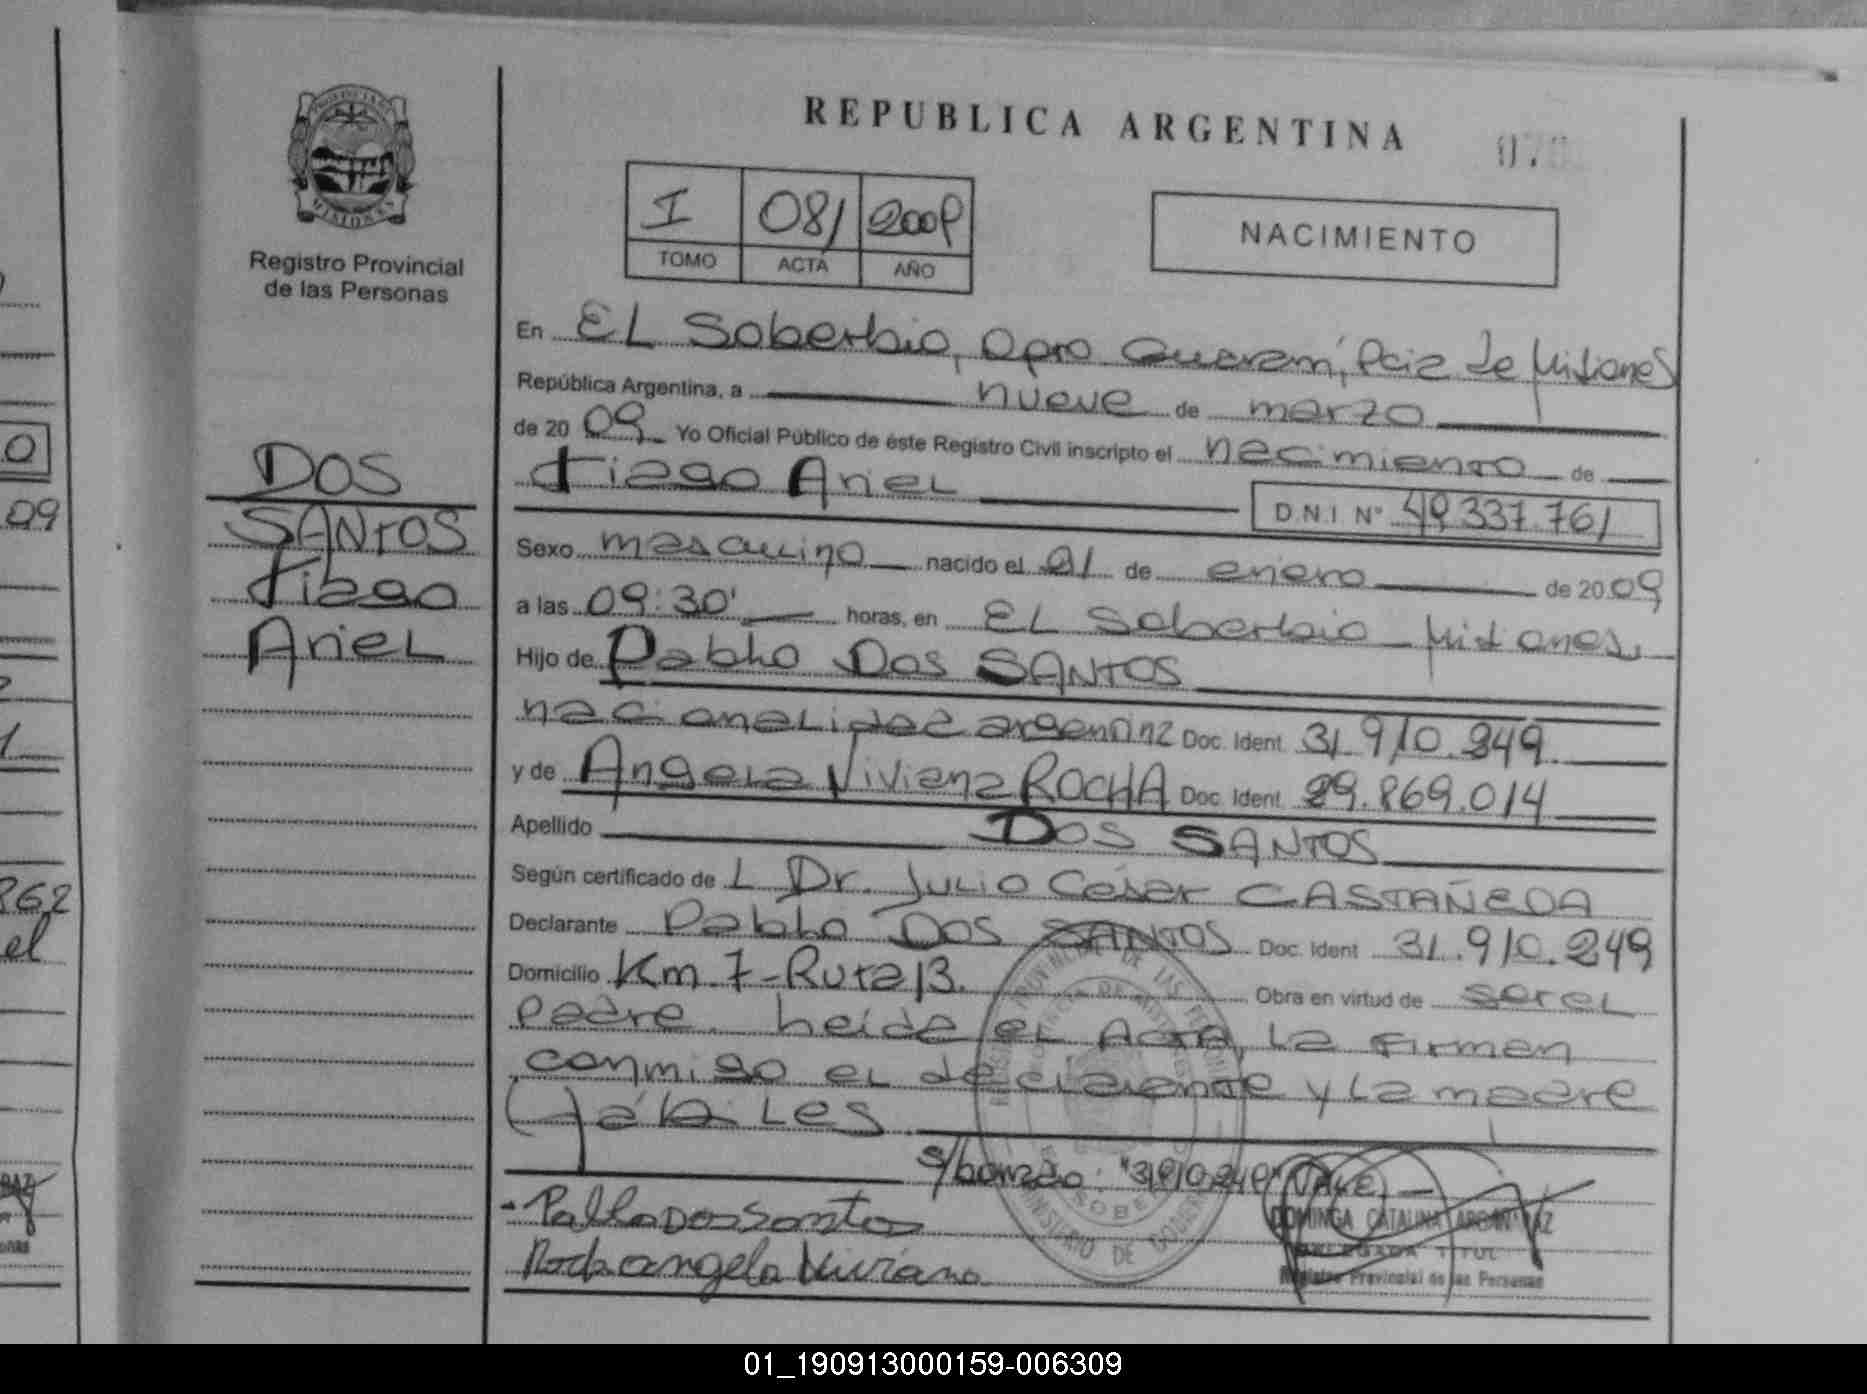 REPUBLICA ARGENTINA
PROVINCIA DE
MISIONES
Registro Provincial
de las Personas
I 081 2009
TOMO ACTA AÑO
NACIMIENTO
DOS
SANTOS
tiago
Ariel
En EL Soberbio, Dpto Guaraní, Pcia de Misiones
República Argentina, a nueve de marzo
de 20 09 Yo Oficial Público de éste Registro Civil inscripto el nacimiento de
tiago Ariel
D.N.I. N° 49.337.761
Sexo masculino nacido el 01 de enero de 20 09
a las 09:30' horas, en EL Soberbio Misiones
Hijo de Pablo Dos SANTOS
nacionalidad argentina Doc. Ident. 31.910.249
y de Angela Viviana ROCHA Doc. Ident. 29.869.014
Apellido DOS SANTOS
Según certificado de L Dr. Julio César CASTAÑEDA
Declarante Pablo DOS SANTOS Doc. Ident 31.910.249
Domicilio Km. 7-Ruta 13. Obra en virtud de ser el
padre. heida el Acta, la firman
conmigo el declarante y la madre
hábiles
s/borrado: "31.910.249" VALE
Pablo Dos Santos
Rocha angela Viviana
DOMINGA CATALINA
DELEGADA TITUL
Registro Provincial de las Personas
MINISTERIO DE
09
862
el
01_190913000159-006309